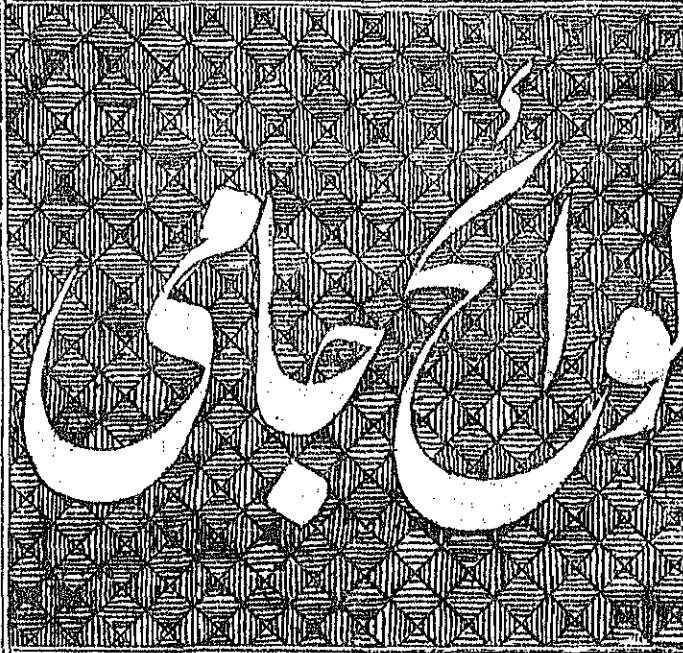 لوائح جامی